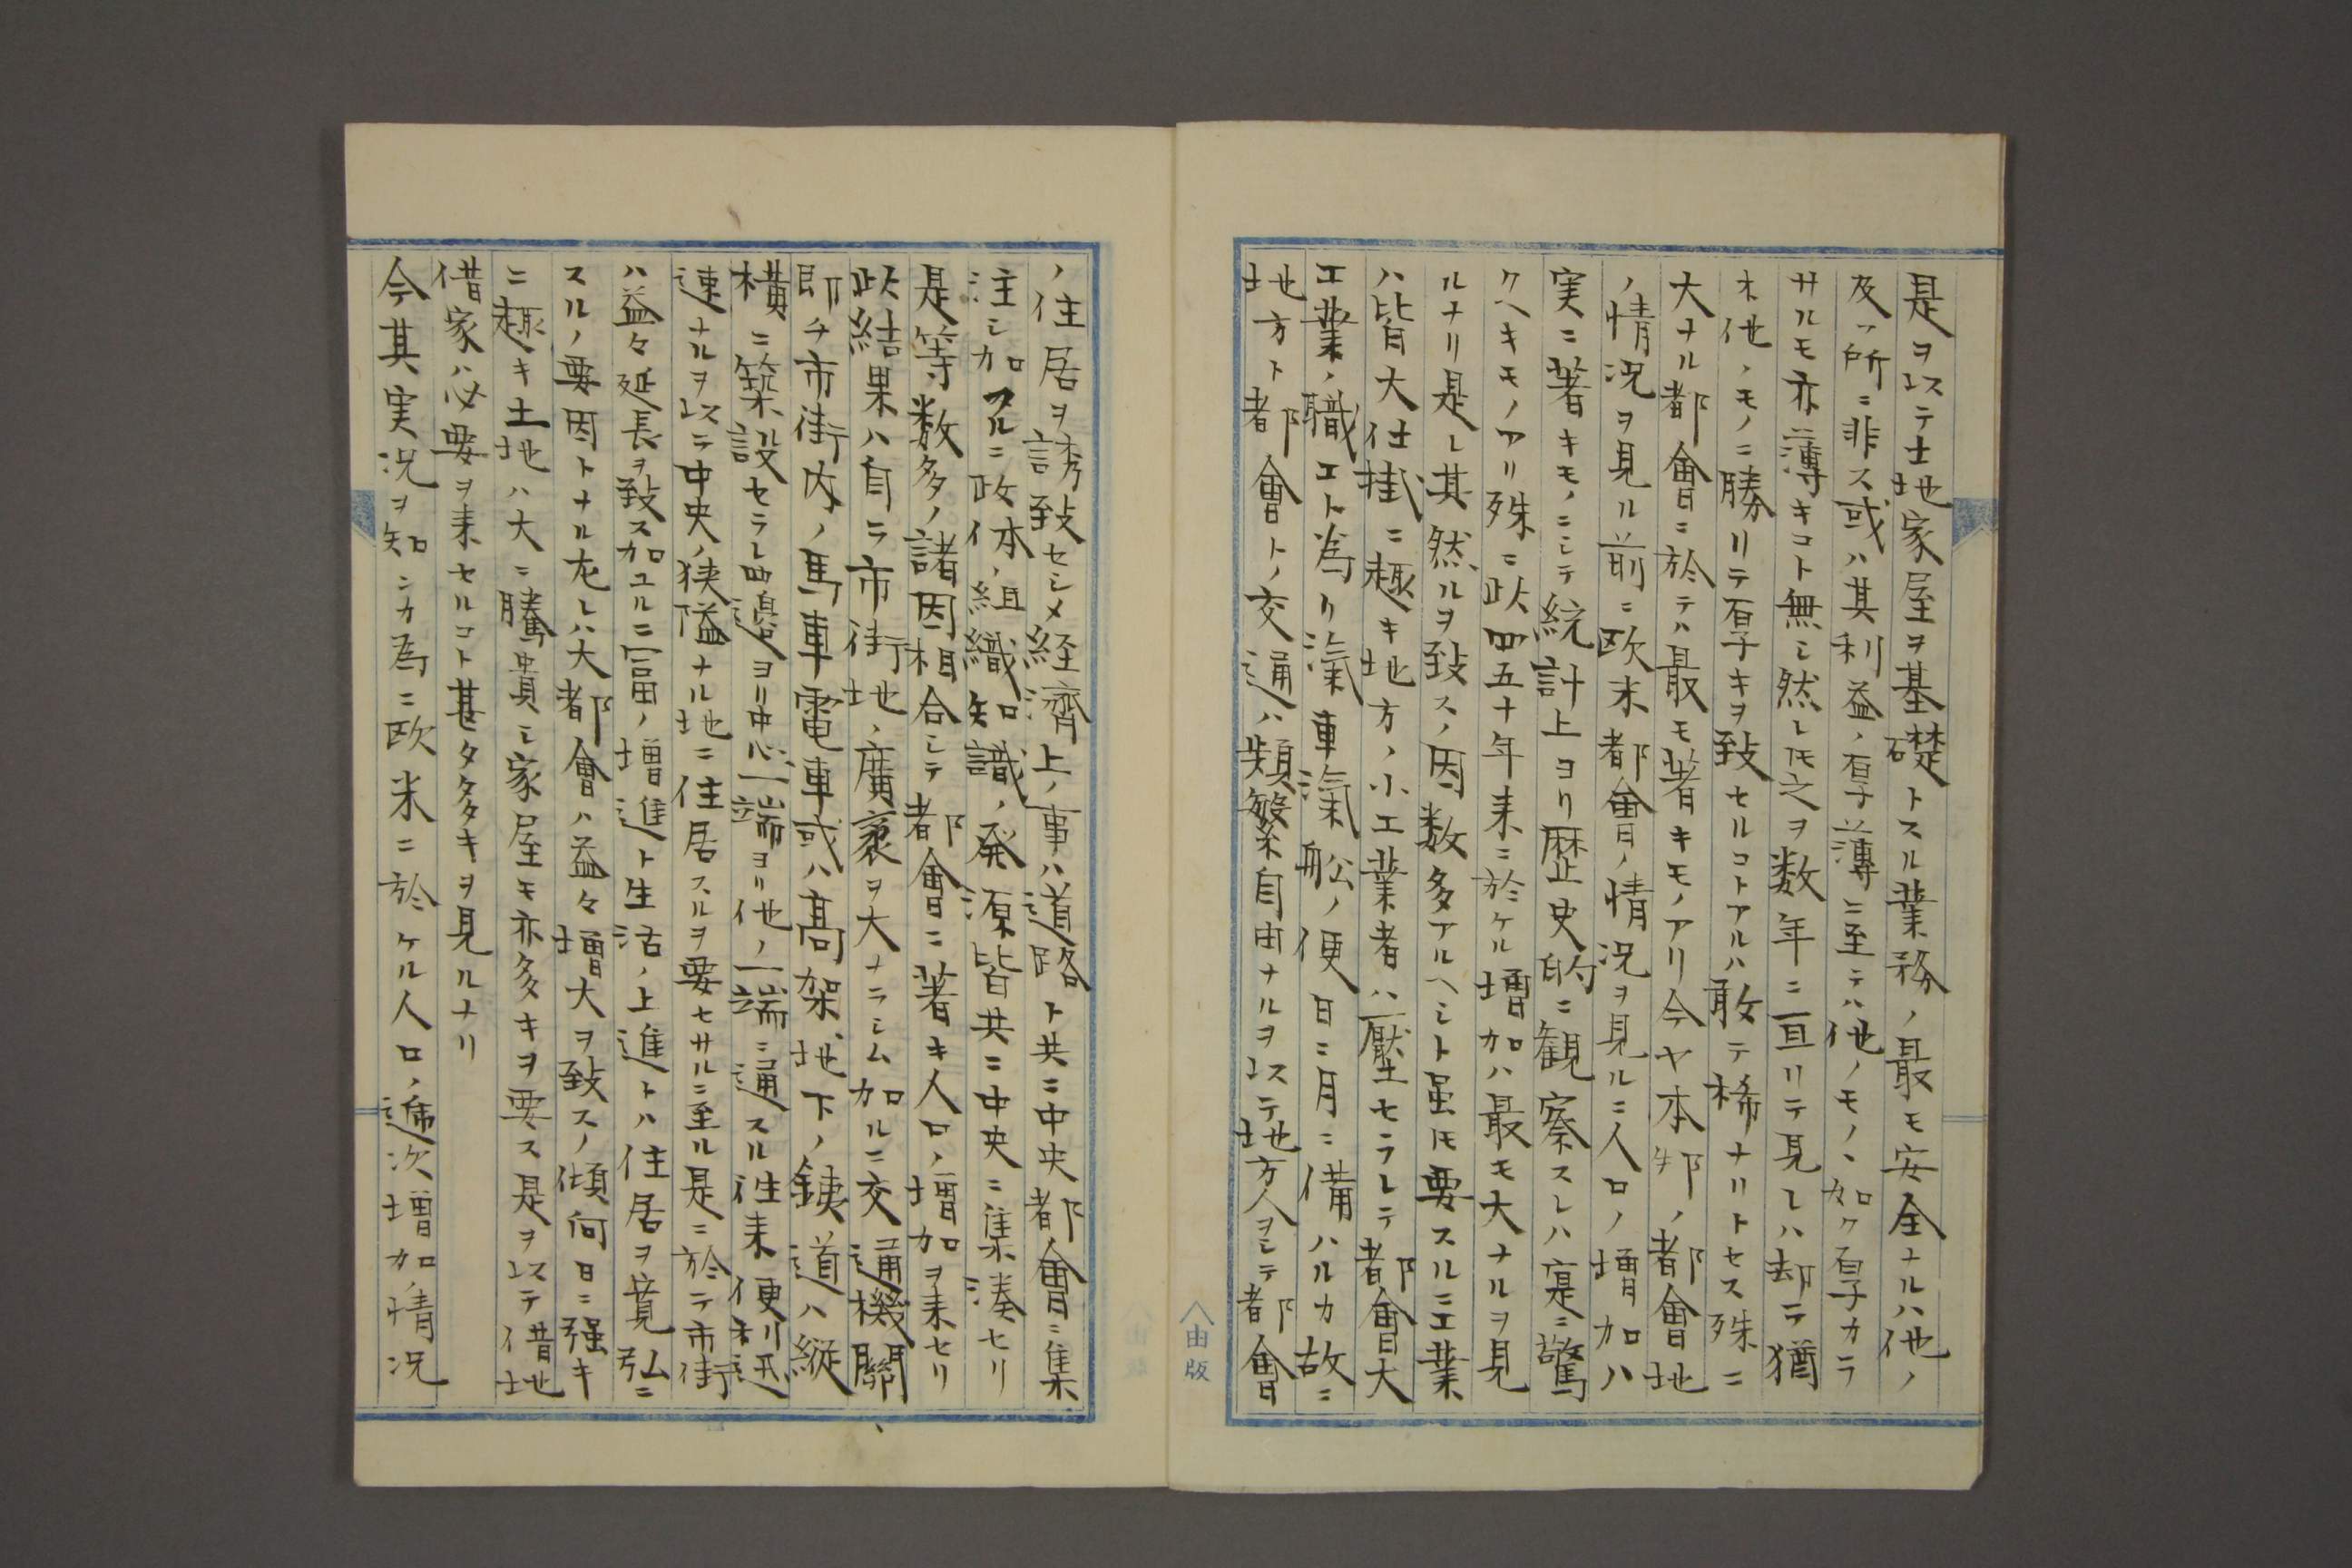 是ヲ以テ土地家屋ヲ基礎トスル業務ノ最モ安全ナルハ他ノ
及フ所ニ非ス或ハ其利益ノ厚薄ニ至テハ他ノモノヽ如ク厚カラ
サルモ亦薄キコト無シ然レ𪜈之ヲ数年ニ亘リテ見レハ却テ猶
ホ他ノモノニ勝リテ厚キヲ致セルコトアルハ敢テ稀ナリトセス殊ニ
大ナル都會ニ於テハ最モ著キモノアリ今ヤ本邦ノ都會地
ノ情況ヲ見ル前ニ欧米都會ノ情況ヲ見ルニ人口ノ増加ハ
実ニ著キモノニシテ統計上ヨリ歴史的ニ観察スレハ寔ニ驚
クヘキモノアリ殊ニ此四五十年来ニ於ケル増加ハ最モ大ナルヲ見
ルナリ是レ其然ルヲ致スノ因数多アルヘシト虽𪜈要スルニ工業
ハ皆大仕掛ニ趣キ地方ノ小工業者ハ壓セラレテ都會大
工業ノ職工ト為リ滊車滊船ノ便日ニ月ニ備ハルカ故ニ
地方ト都會トノ交通ハ頻繁自由ナルヲ以テ地方人ヲシテ都會
ノ住居ヲ誘致セシメ経濟上ノ事ハ道路ト共ニ中央都會ニ集
注シ加フルニ政体ノ組織知識ノ発源皆共ニ中央ニ集湊セリ
是等数多ノ諸因相合シテ都會ニ著キ人口ノ増加ヲ来セリ
此結果ハ自ラ市街地ノ廣袤ヲ大ナラシム加ルニ交通機關
即チ市街内ノ馬車電車或ハ高架地下ノ鉄道ハ縦
横ニ築設セラレ四邊ヨリ中心一端ヨリ他ノ一端ニ通スル往来便利迅
速ナルヲ以テ中央ノ狭隘ナル地ニ住居スルヲ要セサルニ至ル是ニ於テ市街
ハ益々延長ヲ致ス加ユルニ富ノ増進ト生活ノ上進トハ住居ヲ寛弘ニ
スルノ要因トナル左レハ大都會ハ益々増大ヲ致スノ傾向日ニ强キ
ニ趣キ土地ハ大ニ騰貴シ家屋モ亦多キヲ要ス是ヲ以テ借地
借家ハ必要ヲ来セルコト甚タ多キヲ見ルナリ
今其実況ヲ知ンカ為ニ欧米ニ於ケル人口ノ逓次増加ノ情况